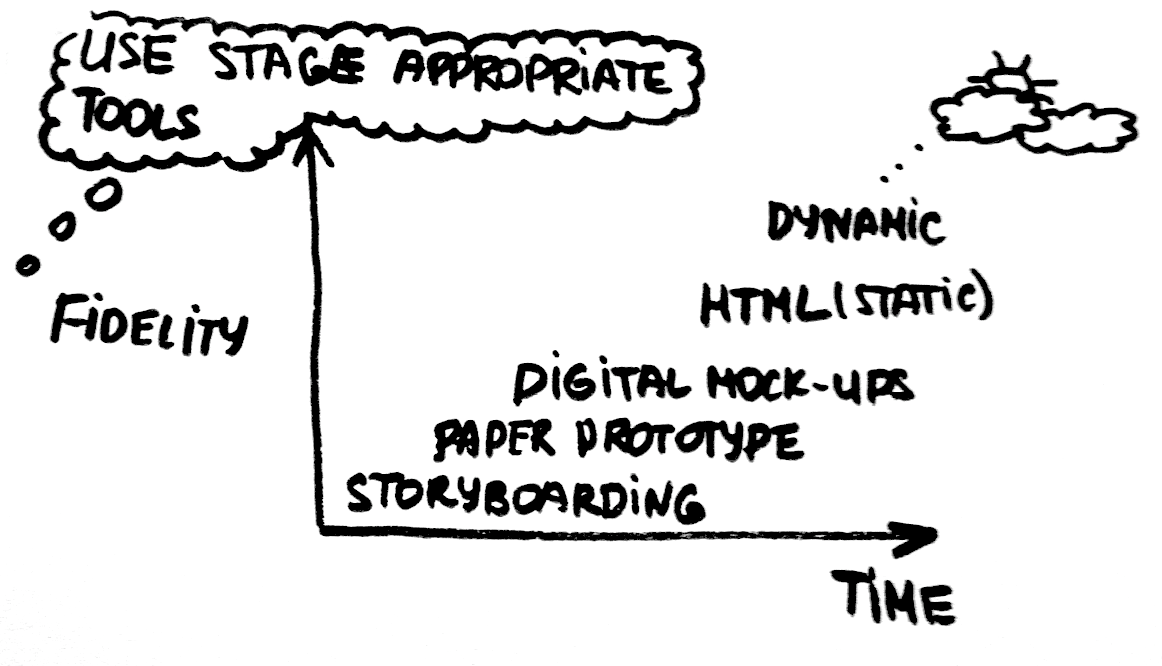 USE STAGE APPROPRIATE
TOOLS
DYNAMIC
HTML (STATIC)
FIDELITY
DIGITAL MOCK-UPS
PAPER PROTOTYPE
STORYBOARDING
TIME